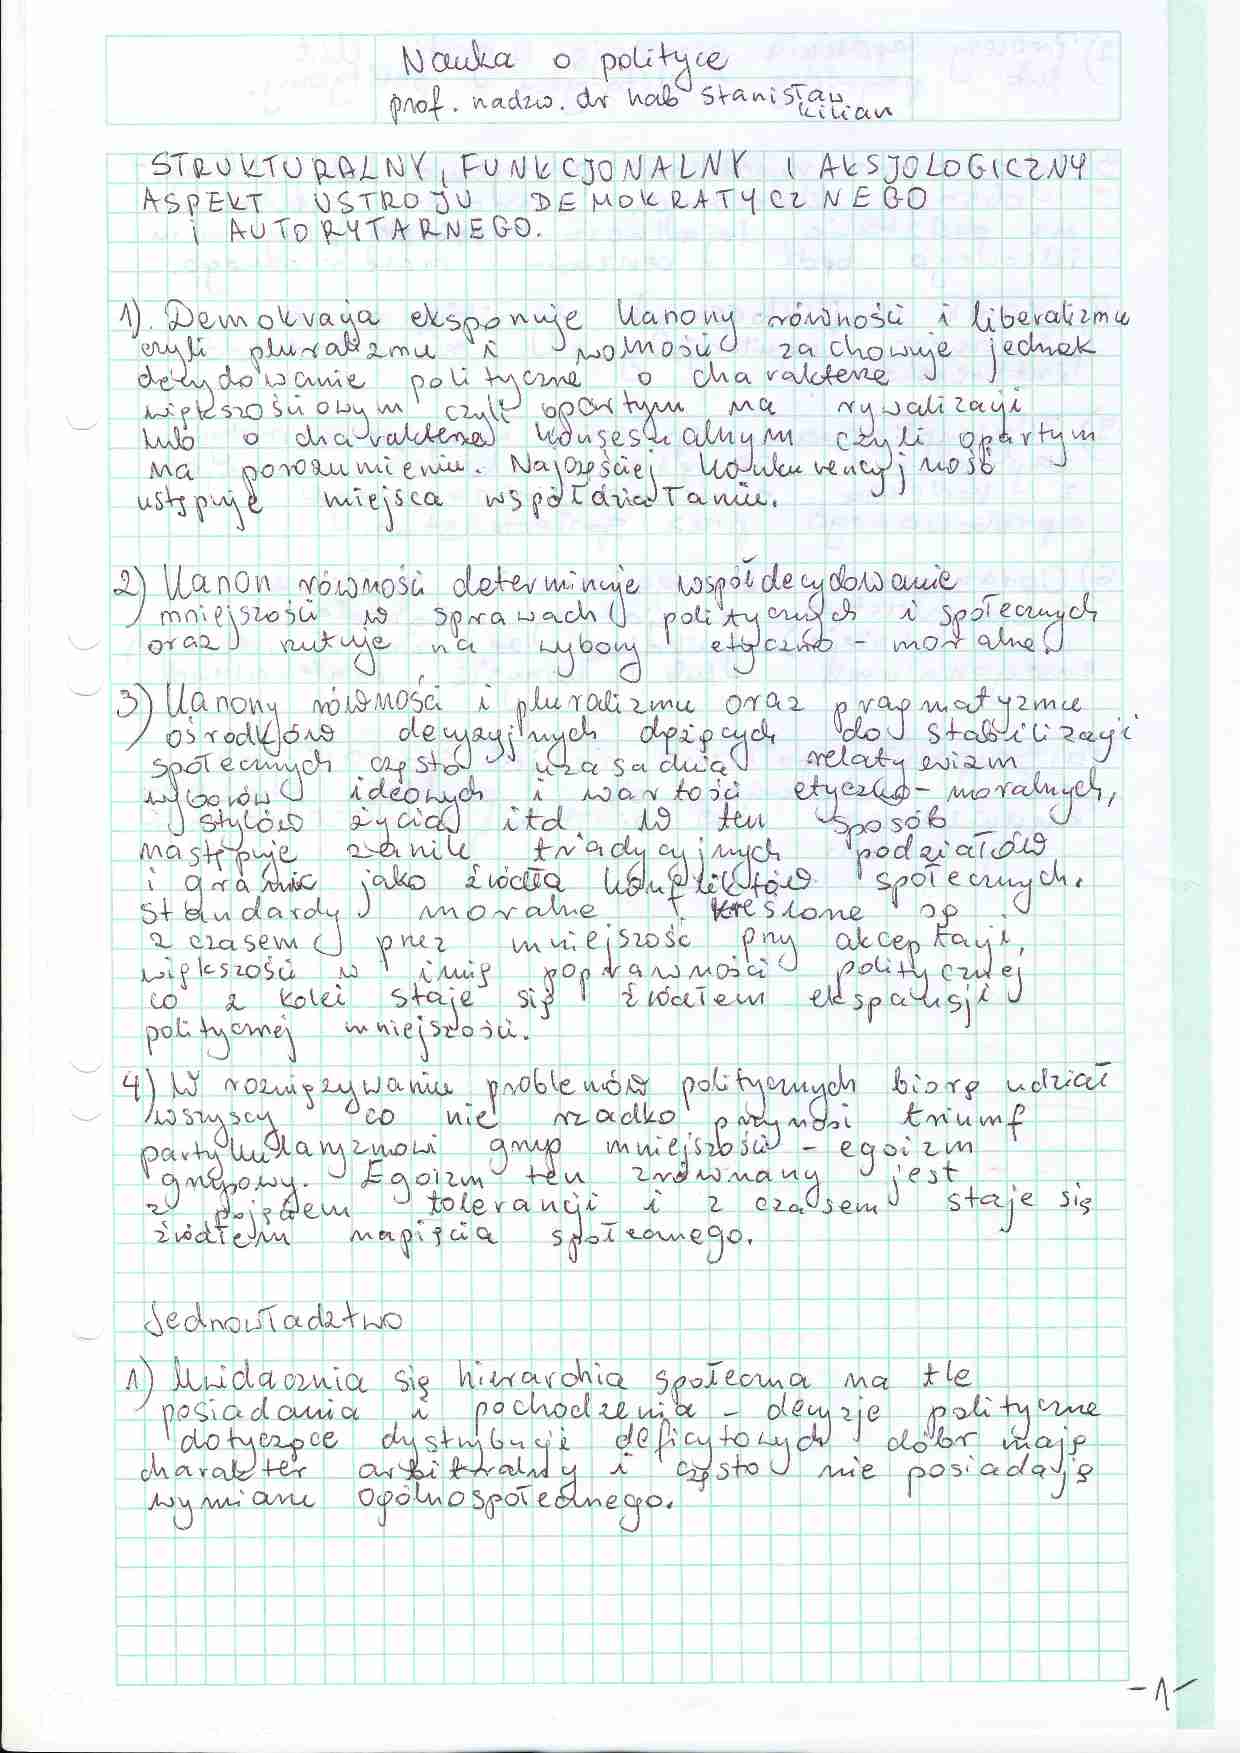 Nauka o polityce
prof. nadzw. dr hab Stanisław
Kilian
STRUKTURALNY, FUNKCJONALNY I AKSJOLOGICZNY
ASPEKT USTROJU DEMOKRATYCZNEGO
I AUTORYTARNEGO.
1). Demokracja eksponuje kanony równości i liberalizmu
czyli pluralizmu i wolności zachowuje jednak
decydowanie polityczne o charakterze
większościowym czyli opartym na rywalizacji
lub o charakterze konsesualnym czyli opartym
na porozumieniu. Najczęściej konkurencyjność
ustępuje miejsca współdziałaniu.
2) Kanon równości determinuje współdecydowanie
mniejszości w sprawach politycznych i społecznych
oraz rzutuje na wybory etyczno - moralne
3) Kanony równości i pluralizmu oraz pragmatyzmu
ośrodków decyzyjnych dążących do stabilizacji
społecznych często uzasadnia relatywizm
wyborów ideowych i wartości etyczno - moralnych,
stylów życia itd. w ten sposób
następuje zanik tradycyjnych podziałów
i granic jako źródła konfliktów społecznych.
Standardy moralne kreślone są
z czasem przez mniejszość przy akceptacji,
większości w imię poprawności politycznej
co z kolei staje się źródłem ekspansji
politycznej mniejszości.
4) W rozwiązywaniu problemów politycznych biorą udział
wszyscy co nie rzadko przynosi triumf
partykularyzmowi grup mniejszości - egoizm
grupowy. Egoizm ten zrównany jest
z pojęciem tolerancji i z czasem staje się
źródłem napięcia społecznego.
Jednowładztwo
1) Uwidacznia się hierarchia społeczna na tle
posiadania i pochodzenia - decyzje polityczne
dotyczące dystrybucji deficytowych dóbr mają
charakter arbitralny i często nie posiadają
wymiaru ogólnospołecznego.
-1-